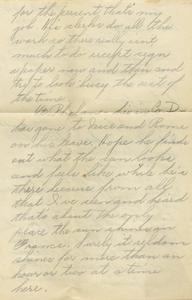 for the present that's my
job. The clerks do all the
work so there really isn't
much to do except sign
a paper now and then and
try to look busy the rest of
the time.
has gone to Nice and Rome
on his leave, hope he finds
out what the sun looks
and feels like while he's
there because from all
that I've seen and heard
thats about the only
place the sun shines on
France. Surely it seldom
shines for more than an
hour or two at a time
here.